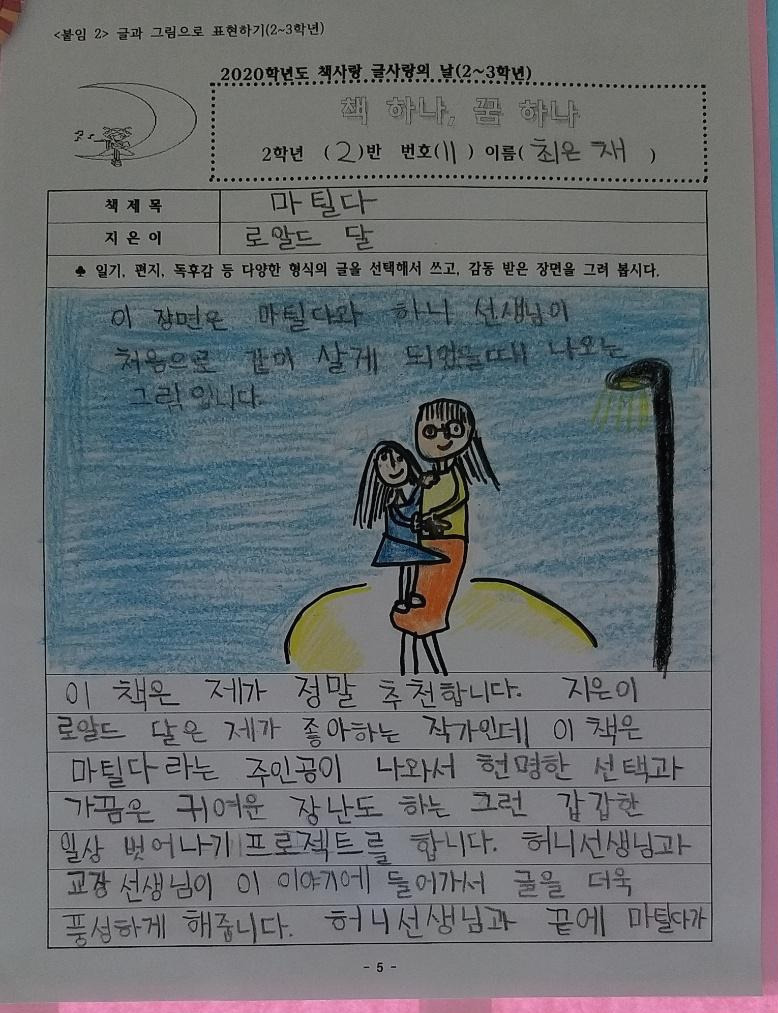 <붙임 2> 글과 그림으로 표현하기(2~3학년)
2020학년도 책사랑 글사랑의 날(2~3학년)
책 하나, 꿈 하나
2학년 (2)반 번호(11) 이름(최은재)
책 제 목 마틸다
지 은 이 로알드 달
♣ 일기, 편지, 독후감 등 다양한 형식의 글을 선택해서 쓰고, 감동 받은 장면을 그려 봅시다.
이 장면은 마틸다와 하니 선생님이
처음으로 같이 살게 되었을때 나오는
그림입니다.
이 책은 제가 정말 추천합니다. 지은이
로알드 달은 제가 좋아하는 작가인데 이 책은
마틸다 라는 주인공이 나와서 현명한 선택과
가끔은 귀여운 장난도 하는 그런 갑갑한
일상 벗어나기 프로젝트를 합니다. 허니선생님과
교장선생님이 이 이야기에 들어가서 글을 더욱
풍성하게 해줍니다. 허니선생님과 끝에 마틸다가
- 5 -